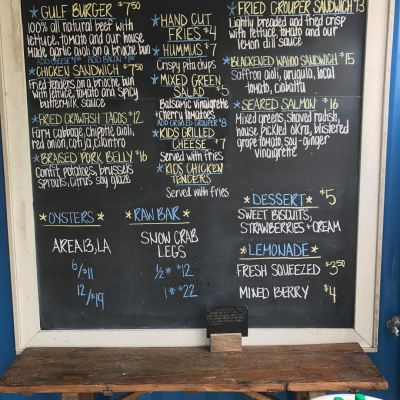 GULF BURGER $7.50
100% all natural beef with
lettuce, tomato and our house
made garlic aioli on a brioche bun
ADD CHEESE $1.00 ADD BACON
CHICKEN SANDWICH $7.50
Fried tenders on a brioche bun
with lettuce, tomato and spicy
buttermilk sauce
FRIED CRAWFISH TACOS $12
Farm cabbage, chipotle aioli,
red onion, cotija, cilantro
BRAISED PORK BELLY $16
Confit, potatoes, brussels
sprouts, citrus soy glaze
HAND CUT
FRIES $4
HUMMUS $7
Crispy pita chips
MIXED GREEN
SALAD $5
Balsamic vinaigrette
+ cherry tomatoes
ADD GRILLED GROUPER $8
KIDS GRILLED
CHEESE $7
Served with fries
KIDS CHICKEN
TENDERS
Served with fries
FRIED GROUPER SANDWICH $13
Lightly breaded and fried crisp
with lettuce, tomato and our
lemon dill sauce
BLACKENED WAHOO SANDWICH $15
Saffron aioli, arugula, local
tomato, ciabatta
SEARED SALMON $16
Mixed greens, shaved radish,
house pickled okra, blistered
grape tomato, soy-ginger
vinaigrette
OYSTERS
AREA 13, LA
6/$11
12/$19
RAW BAR
SNOW CRAB
LEGS
½# $12
1# $22
DESSERT $5
SWEET BISCUITS,
STRAWBERRIES + CREAM
LEMONADE
FRESH SQUEEZED $3.50
MIXED BERRY $4